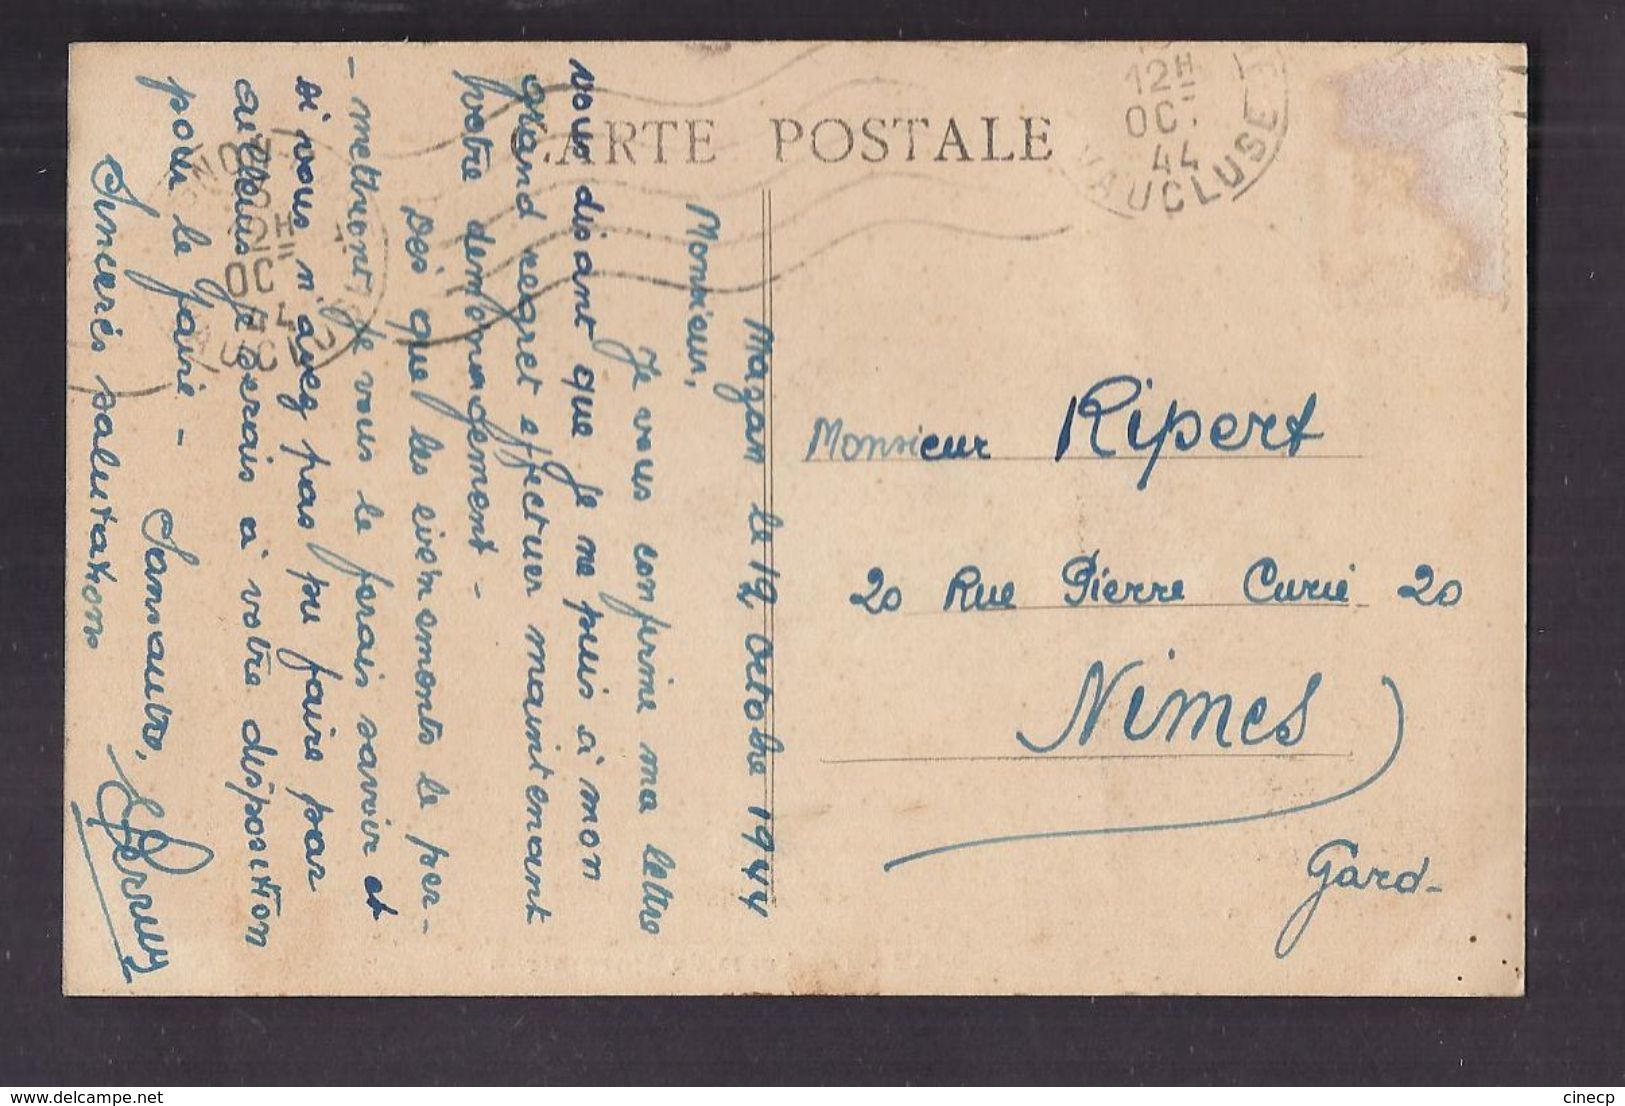 CARTE POSTALE
12H
OC.
44
VAUCLUSE
Mazan le 19 octobre 1944
Monsieur,
Je vous confirme ma lettre
vous disant que je ne puis à mon
grand regret effectuer maintenant
votre demenagement -
Dés que les évènements le per-
- mettront je vous le ferais savoir et
si vous n'avez pas pu faire par
ailleurs je serais à votre disposition
pour le faire -
Sincerès salutations
OC
44
Monsieur Ripert
20 Rue Pierre Curie 20
Nimes
Gard -
www.delcampe.net
cinecp